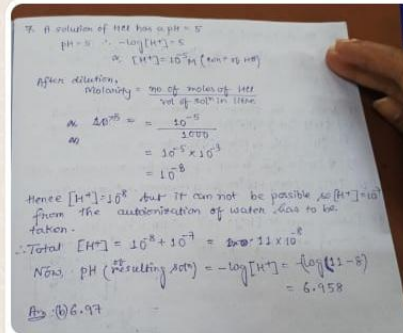 7. A solution of HCl has a pH = 5
pH = 5 ∴ -log[H+] = 5
∝ [H+] = 10^-5 M (conc^n of HCl)
After dilution,
Molarity = no. of moles of HCl / vol of sol^n in litre
= 10^-5 / 1000
= 10^-5 × 10^-3
= 10^-8
Hence [H+] = 10^-8 but it can not be possible, so [H+] = 10^-7
from the autoionization of water has to be
taken.
∴ Total [H+] = 10^-8 + 10^-7 = 11 × 10^-8
Now, pH (of resulting sol^n) = -log[H+] = -(log 11 - 8)
= 6.958
Ans: (b) 6.97